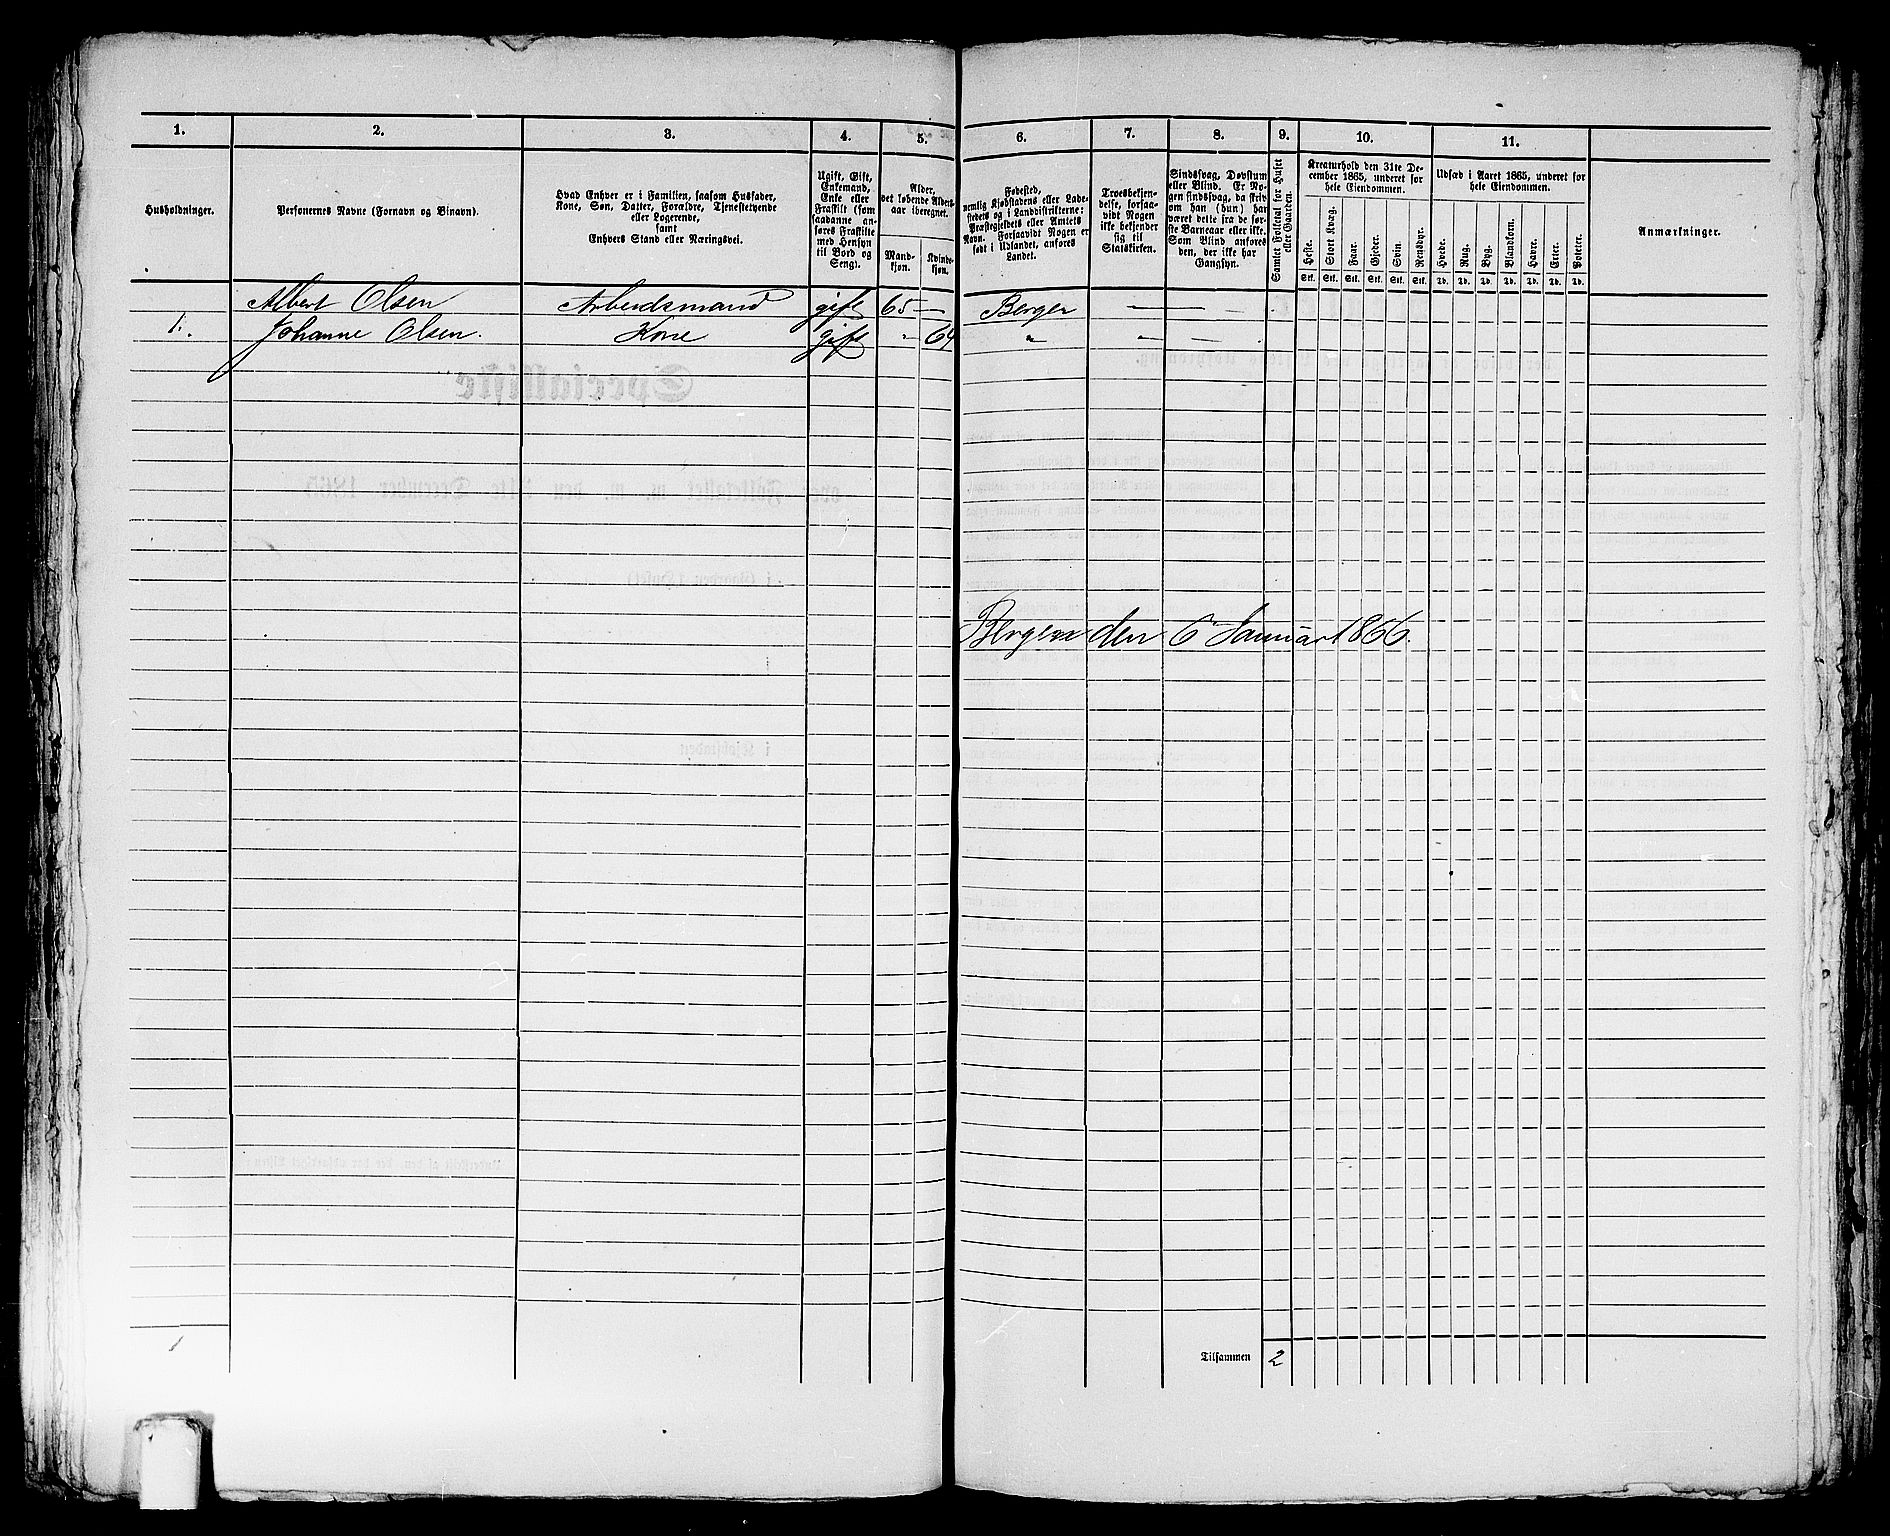 1. 2. 3. 4. 5. 6. 7. 8. 9. 10. 11.
Husholdninger.
Personernes Navne (Fornavn og Binavn).
Hvad Enhver er i Familien, saasom Husfader,
Kone, Søn, Datter, Forældre, Tjenestetyende
eller Logerende,
samt
Enhvers Stand eller Næringsvei.
Ugift, Gift,
Enkemand,
Enke eller
Fraskilt (som
saadanne an-
føres Fraskilte
med Hensyn
til Bord og
Seng).
Alder,
det løbende Alders-
aar iberegnet.
Mand-
kjøn.
Kvinde-
kjøn.
Fødested,
nemlig Kjøbstadens eller Lade-
stedets og i Landdistrikterne:
Præstegjeldets eller Amtets
Navn. Forsaavidt Nogen er
født i Udlandet, anføres
Landet.
Troesbekjen-
delse, forsaa-
vidt Nogen
ikke bekjender
sig til
Statskirken.
Sindssvag, Døvstum
eller Blind. Er No-
gen sindssvag, da skriv
om han (hun) har
været dette fra de før-
ste Barneaar eller ikke.
Som Blind anføres
den, der ikke har
Gangsyn.
Samlet Folketal for Huset
eller Gaarden.
Kreaturhold den 31te De-
cember 1865, underet for
hele Eiendommen.
Heste. Stort Kvæg. Faar. Gjeder. Svin. Rensdyr.
Stk. Stk. Stk. Stk. Stk. Stk.
Udsæd i Aaret 1865, underet for
hele Eiendommen.
Hvede. Rug. Byg. Blandkorn. Havre. Erter. Poteter.
Td. Td. Td. Td. Td. Td. Td.
Anmærkninger.
Albert Olsen Arbeidsmand gift 65 — Bergen — — —
1. Johanne Olsen. Kone gift " 64 " " —
Bergen den 6 Januar 1866.
1
Tilsammen 2